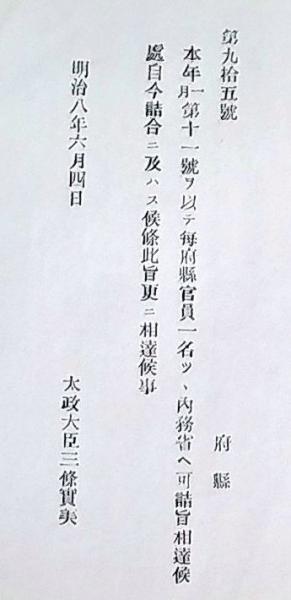 第九拾五號
府縣
本年一月第十一號ヲ以テ每府縣官員一名ツヽ內務省ヘ可詰旨相達候
處自今詰合ニ及ハス候條此旨更ニ相達候事
明治八年六月四日
太政大臣三條實美